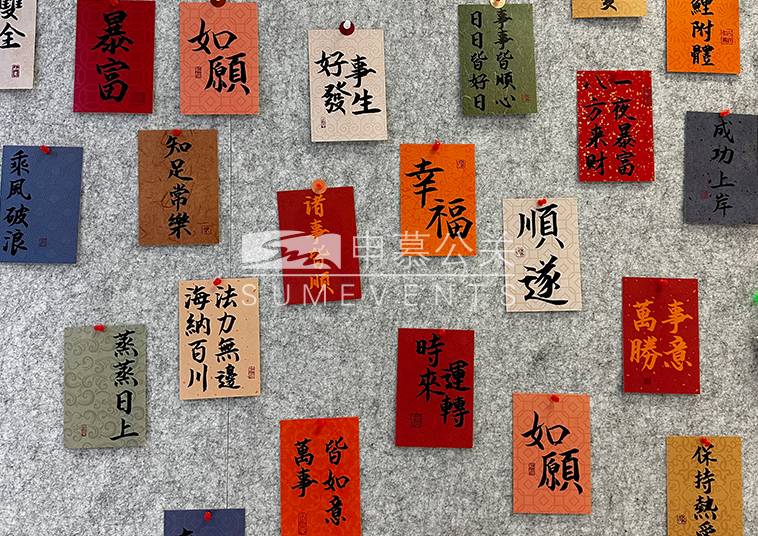 雙全
暴富
如願
好事
發生
事事皆順心
日日皆好日
鯉附體
一夜暴富
八方来財
成功上岸
乘風破浪
知足常樂
諸事皆順
幸福
順遂
申慕公关
SUMEVENTS
法力無邊
海納百川
萬事
勝意
蒸蒸日上
時來
運轉
萬事
皆如意
如願
保持熱愛